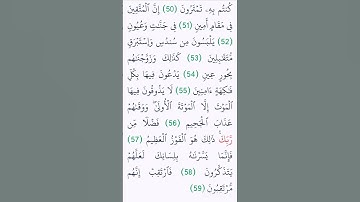 كُنتُم بِهِۦ تَمْتَرُونَ (50) إِنَّ ٱلْمُتَّقِينَ
فِى مَقَامٍ أَمِينٍ (51) فِى جَنَّـٰتٍ وَعُيُونٍ
(52) يَلْبَسُونَ مِن سُندُسٍ وَإِسْتَبْرَقٍ
مُّتَقَـٰبِلِينَ (53) كَذَٰلِكَ وَزَوَّجْنَـٰهُم
بِحُورٍ عِينٍ (54) يَدْعُونَ فِيهَا بِكُلِّ
فَـٰكِهَةٍ ءَامِنِينَ (55) لَا يَذُوقُونَ فِيهَا
ٱلْمَوْتَ إِلَّا ٱلْمَوْتَةَ ٱلْأُولَىٰ ۖ وَوَقَىٰهُمْ
عَذَابَ ٱلْجَحِيمِ (56) فَضْلًا مِّن
رَّبِّكَ ۚ ذَٰلِكَ هُوَ ٱلْفَوْزُ ٱلْعَظِيمُ (57)
فَإِنَّمَا يَسَّرْنَـٰهُ بِلِسَانِكَ لَعَلَّهُمْ
يَتَذَكَّرُونَ (58) فَٱرْتَقِبْ إِنَّهُم
مُّرْتَقِبُونَ (59)